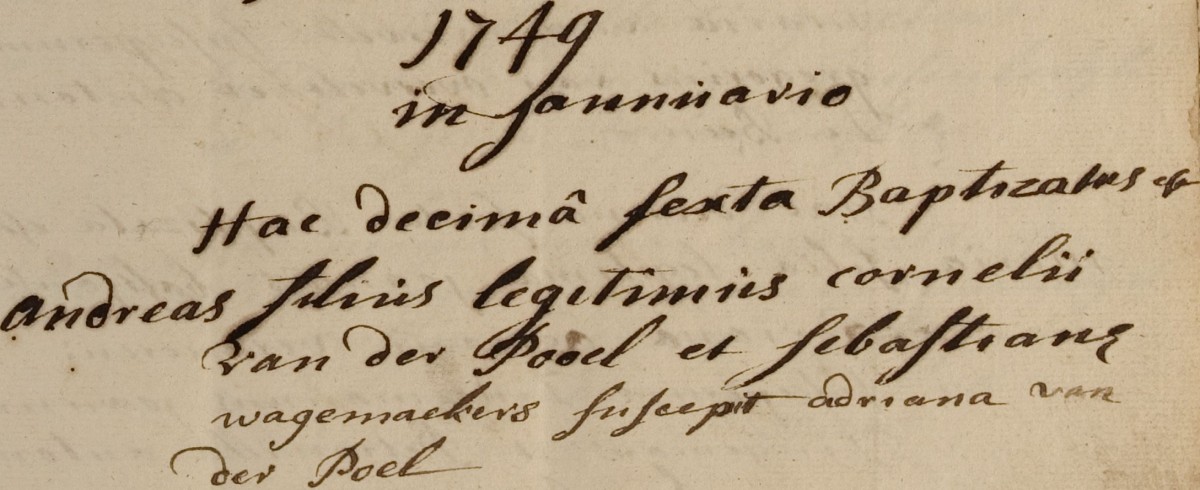 1749
in Januuario
Hac decimâ sexta Baptizatus est
Andreas filius legitimus cornelii
van der Pooel et sebastianę
wagemackers suscepit adriana van
der Poel